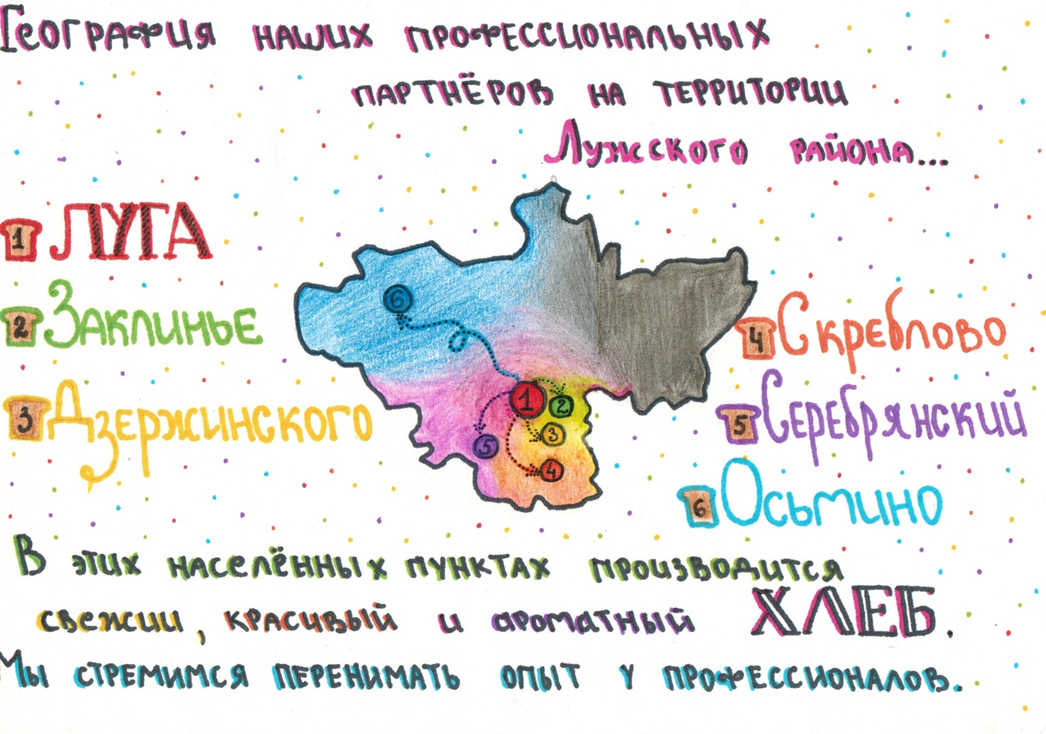 География наших профессиональных
партнёров на территории
Лужского района...
1 ЛУГА
2 Заклинье
3 Дзержинского
4 Скреблово
5 Серебрянский
6 Осьмино
6
1
2
3
5
4
В этих населённых пунктах производится
свежий, красивый и ароматный ХЛЕБ.
Мы стремимся перенимать опыт у профессионалов.